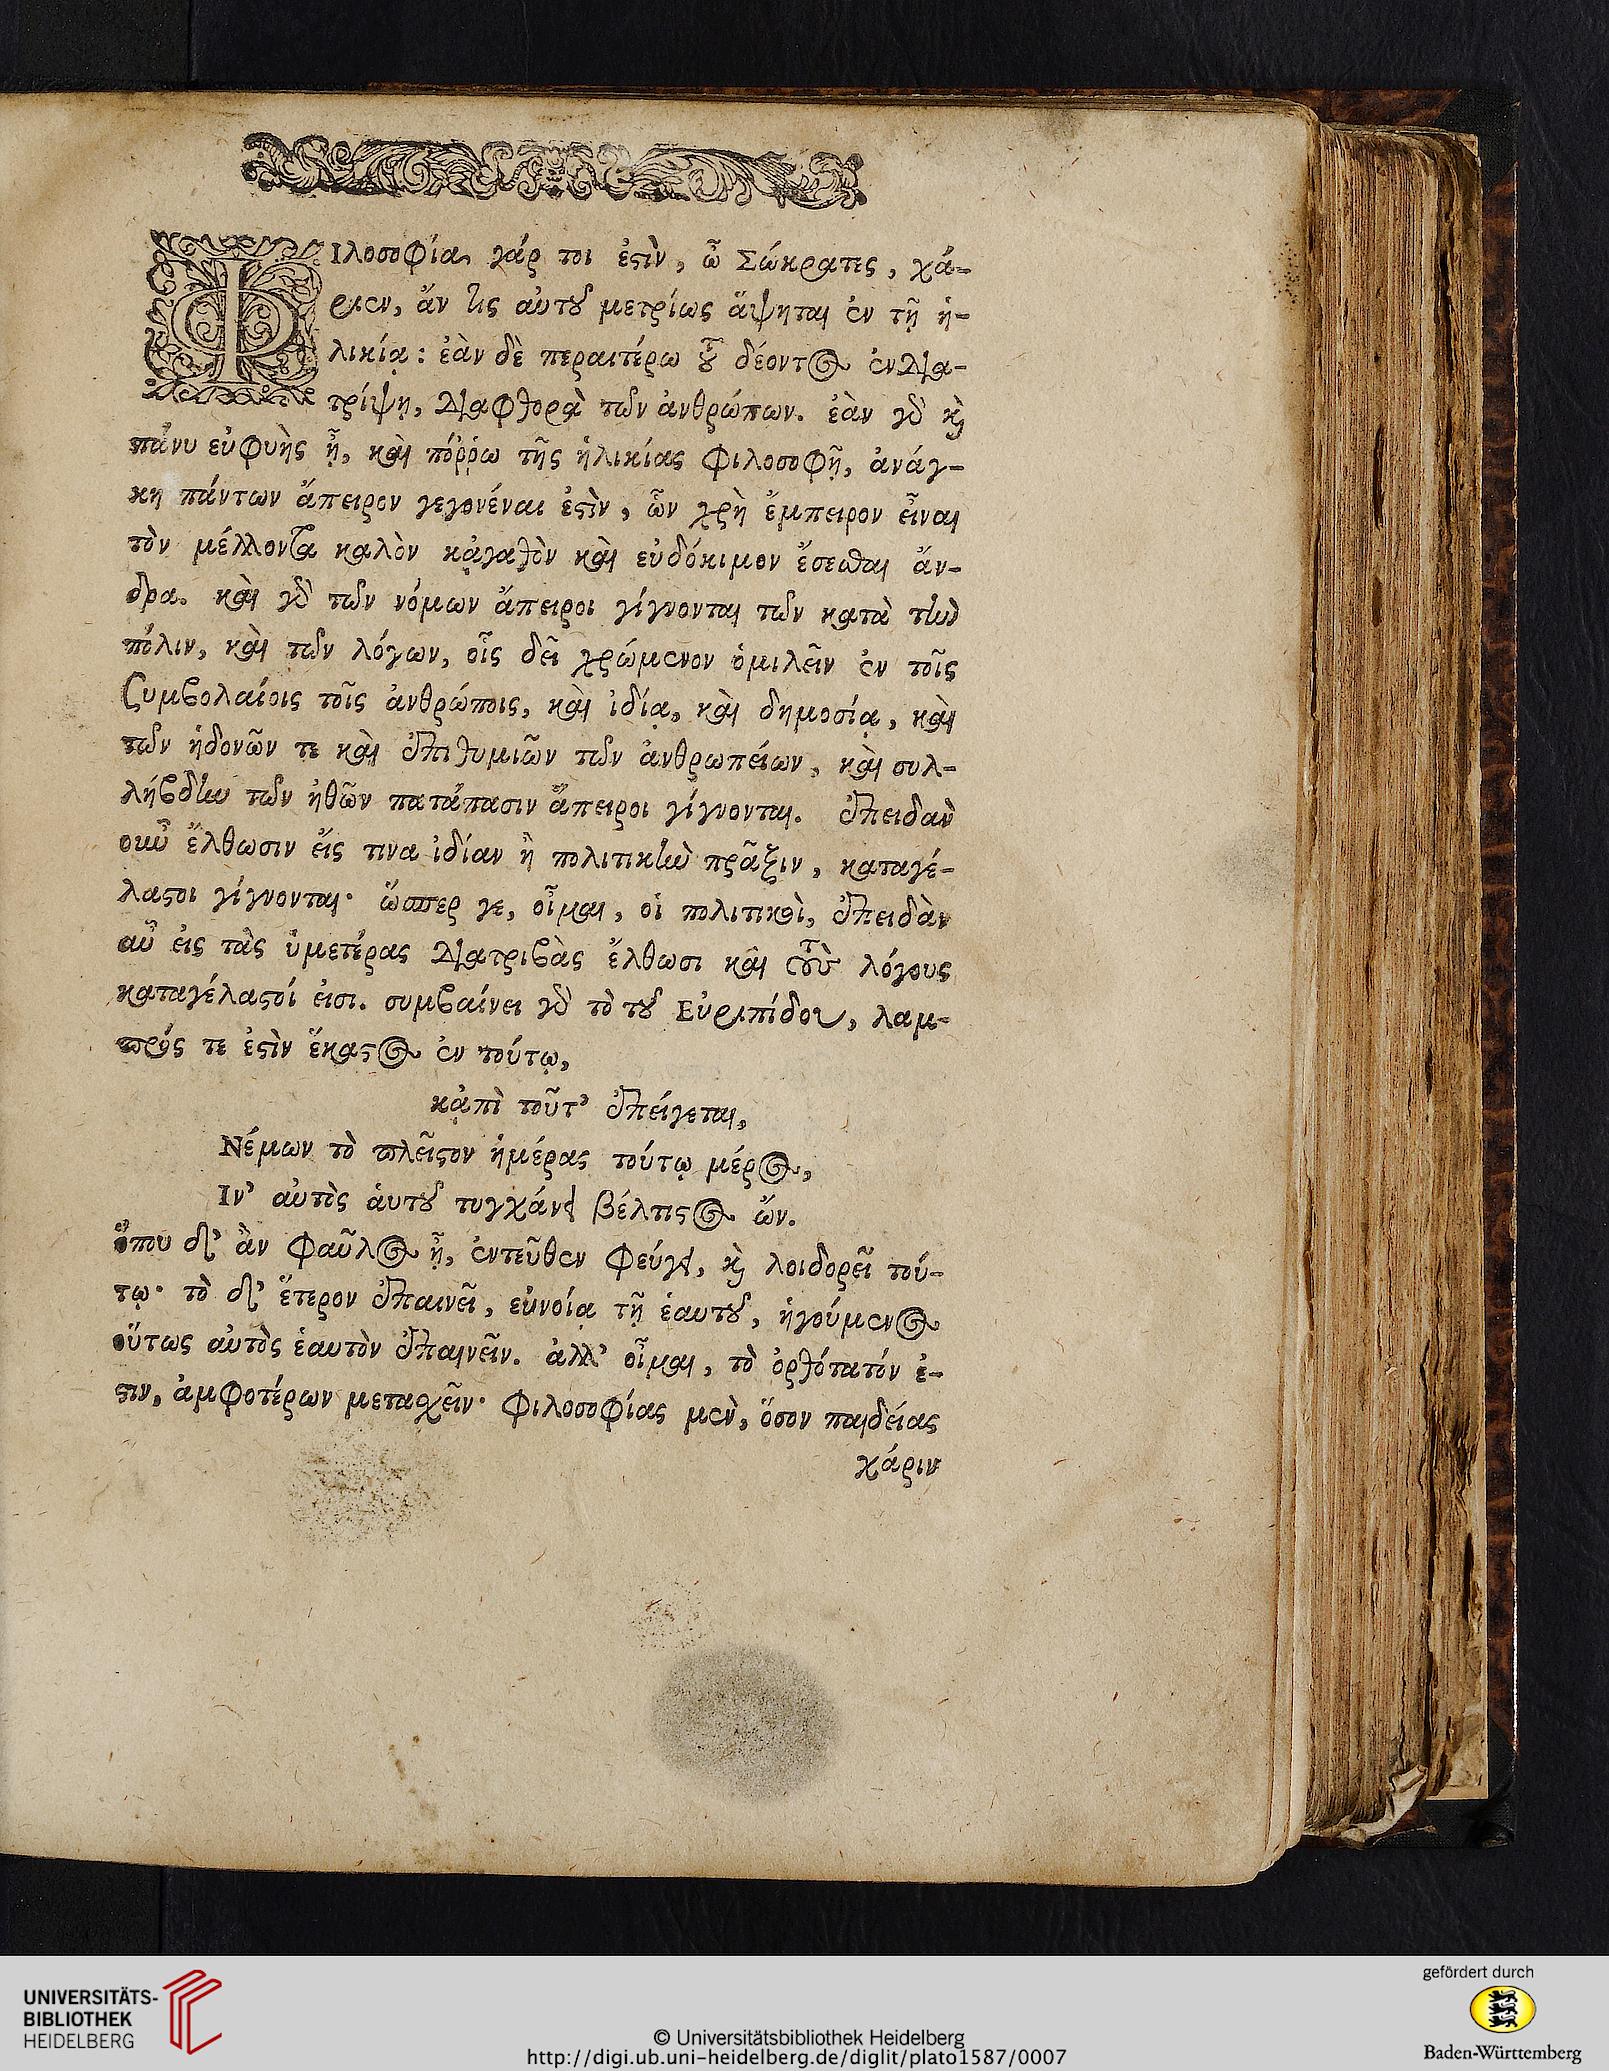 ΦΙλοσοφία γάρ τοι ἐστὶν, ὦ Σώκρατες, χά-
ριεν, ἄν τις αὐτοῦ μετρίως ἅψηται ἐν τῇ ἡ-
λικίᾳ: ἐὰν δὲ περαιτέρω τοῦ δέοντος ἐνδια-
τρίψῃ, διαφθορὰ τῶν ἀνθρώπων. ἐὰν γὰρ καὶ
πάνυ εὐφυὴς ᾖ, καὶ πόῤῥω τῆς ἡλικίας φιλοσοφῇ, ἀνάγ-
κη πάντων ἄπειρον γεγονέναι ἐστὶν, ὧν χρὴ ἔμπειρον εἶναι
τὸν μέλλοντα καλὸν κᾀγαθὸν καὶ εὐδόκιμον ἔσεσθαι ἄν-
δρα. καὶ γὰρ τῶν νόμων ἄπειροι γίγνονται τῶν κατὰ τὴν
πόλιν, καὶ τῶν λόγων, οἷς δεῖ χρώμενον ὁμιλεῖν ἐν τοῖς
ξυμβολαίοις τοῖς ἀνθρώποις, καὶ ἰδίᾳ, καὶ δημοσίᾳ, καὶ
τῶν ἡδονῶν τε καὶ ἐπιθυμιῶν τῶν ἀνθρωπείων, καὶ συλ-
λήβδην τῶν ἠθῶν πατάπασιν ἄπειροι γίγνονται. ἐπειδὰν
οὖν ἔλθωσιν εἴς τινα ἰδίαν ἢ πολιτικὴν πρᾶξιν, καταγέ-
λαστοι γίγνονται· ὥσπερ γε, οἶμαι, οἱ πολιτικοὶ, ἐπειδὰν
αὖ εἰς τὰς ὑμετέρας διατριβὰς ἔλθωσι καὶ τοὺς λόγους
καταγέλαστοί εἰσι. συμβαίνει γὰρ τὸ τοῦ Εὐριπίδου, λαμ-
πρός τε ἐστὶν ἕκαστος ἐν τούτῳ,
κᾀπὶ τοῦτ' ἐπείγεται,
Νέμων τὸ πλεῖστον ἡμέρας τούτῳ μέρος,
Ιν' αὐτὸς αὑτοῦ τυγχάνει βέλτιστος ὤν.
ὅπου δ' ἂν φαῦλος ᾖ, ἐντεῦθεν φεύγει, καὶ λοιδορεῖ τού-
τῳ· τὸ δ' ἕτερον ἐπαινεῖ, εὐνοίᾳ τῇ ἑαυτοῦ, ἡγούμενος
οὕτως αὐτὸς ἑαυτὸν ἐπαινεῖν. ἀλλ' οἶμαι, τὸ ὀρθότατόν ἐ-
στιν, ἀμφοτέρων μετασχεῖν· φιλοσοφίας μὲν, ὅσον παιδείας
χάριν
UNIVERSITÄTS-
BIBLIOTHEK
HEIDELBERG
© Universitätsbibliothek Heidelberg
http://digi.ub.uni-heidelberg.de/diglit/plato1587/0007
gefördert durch
Baden-Württemberg